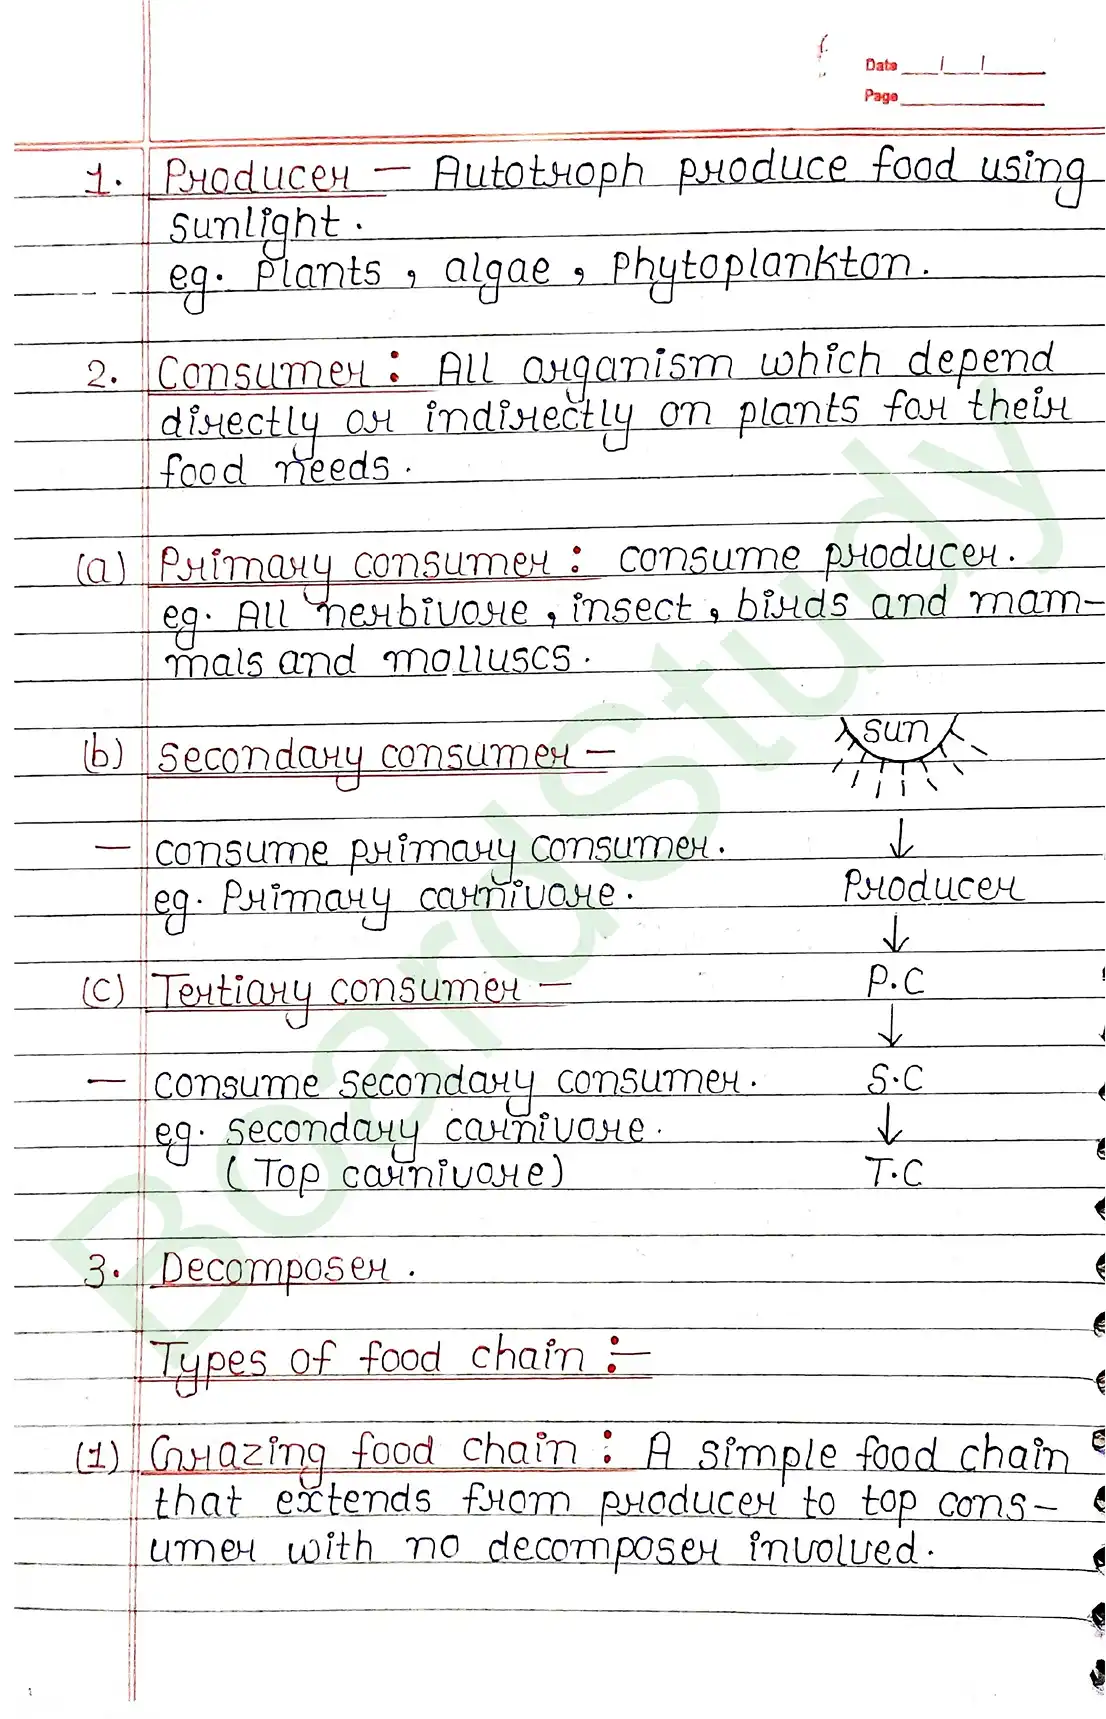 Date
Page
1. Producer – Autotroph produce food using
sunlight.
eg. Plants, algae, Phytoplankton.
2. Consumer : All organism which depend
directly or indirectly on plants for their
food needs.
(a) Primary consumer : consume producer.
eg. All herbivore, insect, birds and mam–
mals and molluscs.
(b) Secondary consumer –
– consume primary consumer.
eg. Primary carnivore.
(c) Tertiary consumer –
– consume secondary consumer.
eg. secondary carnivore.
(Top carnivore)
sun
↓
Producer
↓
P.C
↓
S.C
↓
T.C
3. Decomposer.
Types of food chain :–
(1) Grazing food chain : A simple food chain
that extends from producer to top cons–
umer with no decomposer involved.
BoardStudy